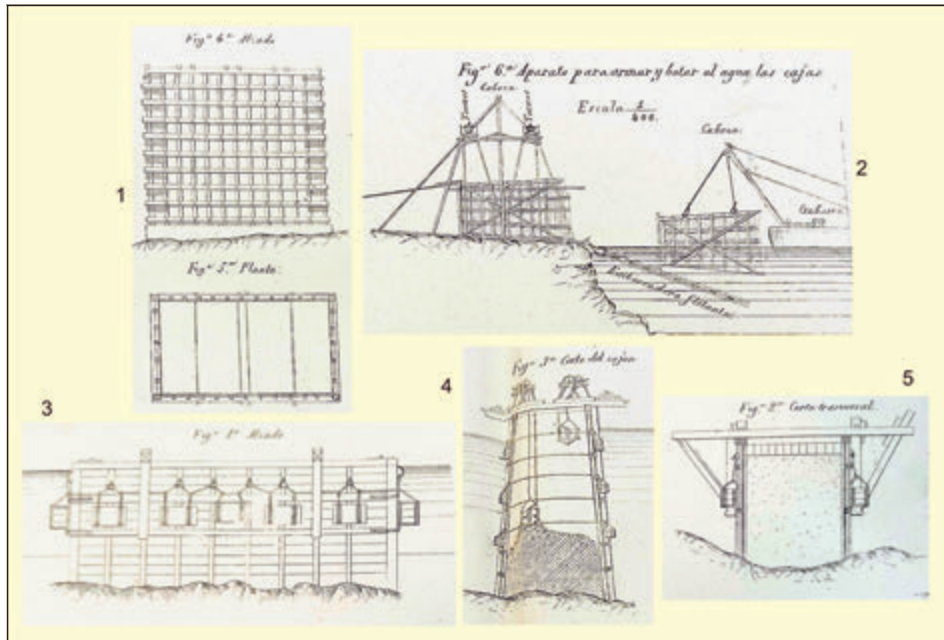 Fig.ª 4.ª Alzado
1
Fig.ª 5.ª Planta.
Fig.ª 6.ª Aparato para armar y botar al agua las cajas
Escala 1/400.
Cabria
Torno
Torno
Cabria.
2
3
Fig.ª 1.ª Alzado
4
Fig.ª 3.ª Corte del cajón
5
Fig.ª 2.ª Corte transversal.